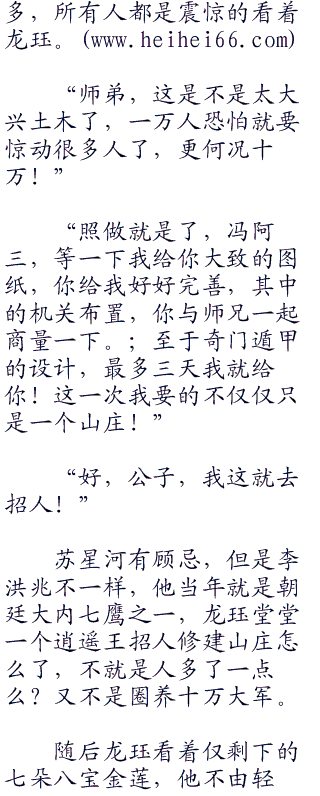 多，所有人都是震惊的看着
龙珏。(www.heihei66.com)
“师弟，这是不是太大
兴土木了，一万人恐怕就要
惊动很多人了，更何况十
万！”
“照做就是了，冯阿
三，等一下我给你大致的图
纸，你给我好好完善，其中
的机关布置，你与师兄一起
商量一下。；至于奇门遁甲
的设计，最多三天我就给
你！这一次我要的不仅仅只
是一个山庄！”
“好，公子，我这就去
招人！”
苏星河有顾忌，但是李
洪兆不一样，他当年就是朝
廷大内七鹰之一，龙珏堂堂
一个逍遥王招人修建山庄怎
么了，不就是人多了一点
么？又不是圈养十万大军。
随后龙珏看着仅剩下的
七朵八宝金莲，他不由轻